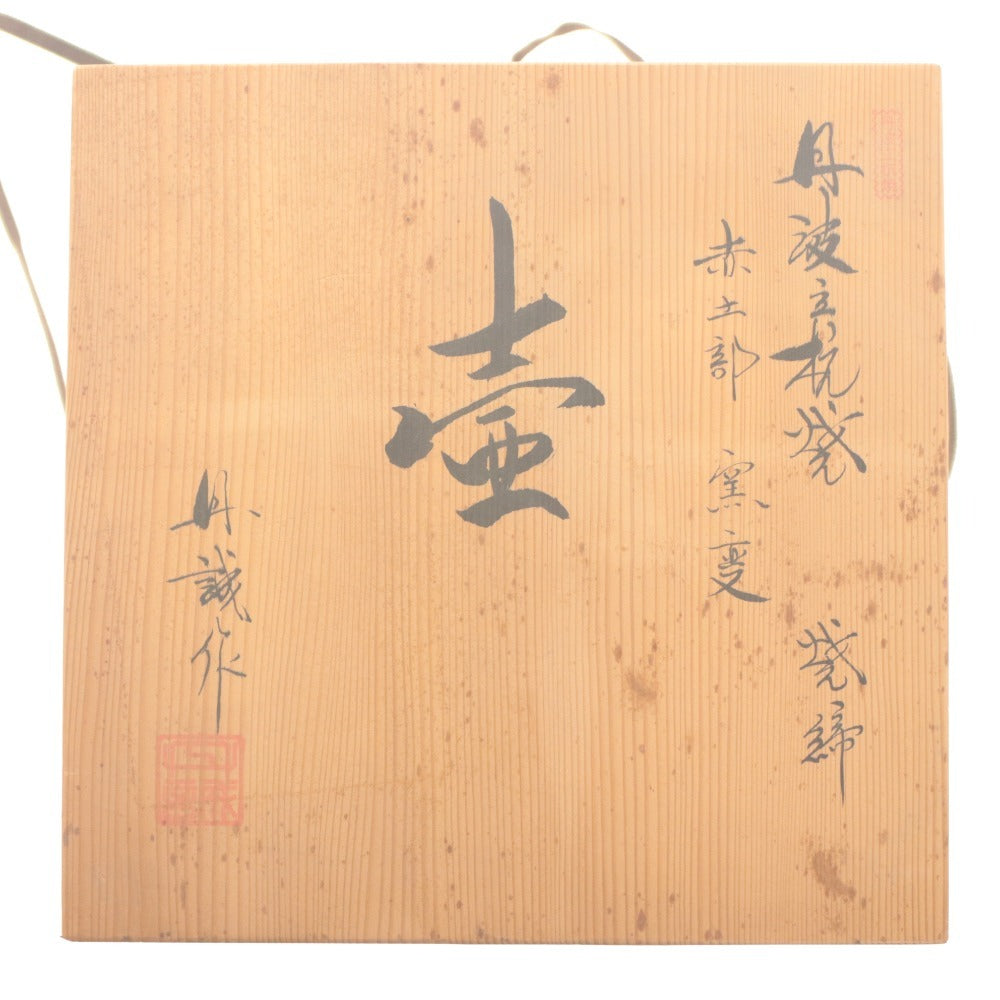 丹波立杭焼 焼締
赤土部 窯変
壷
丹誠作